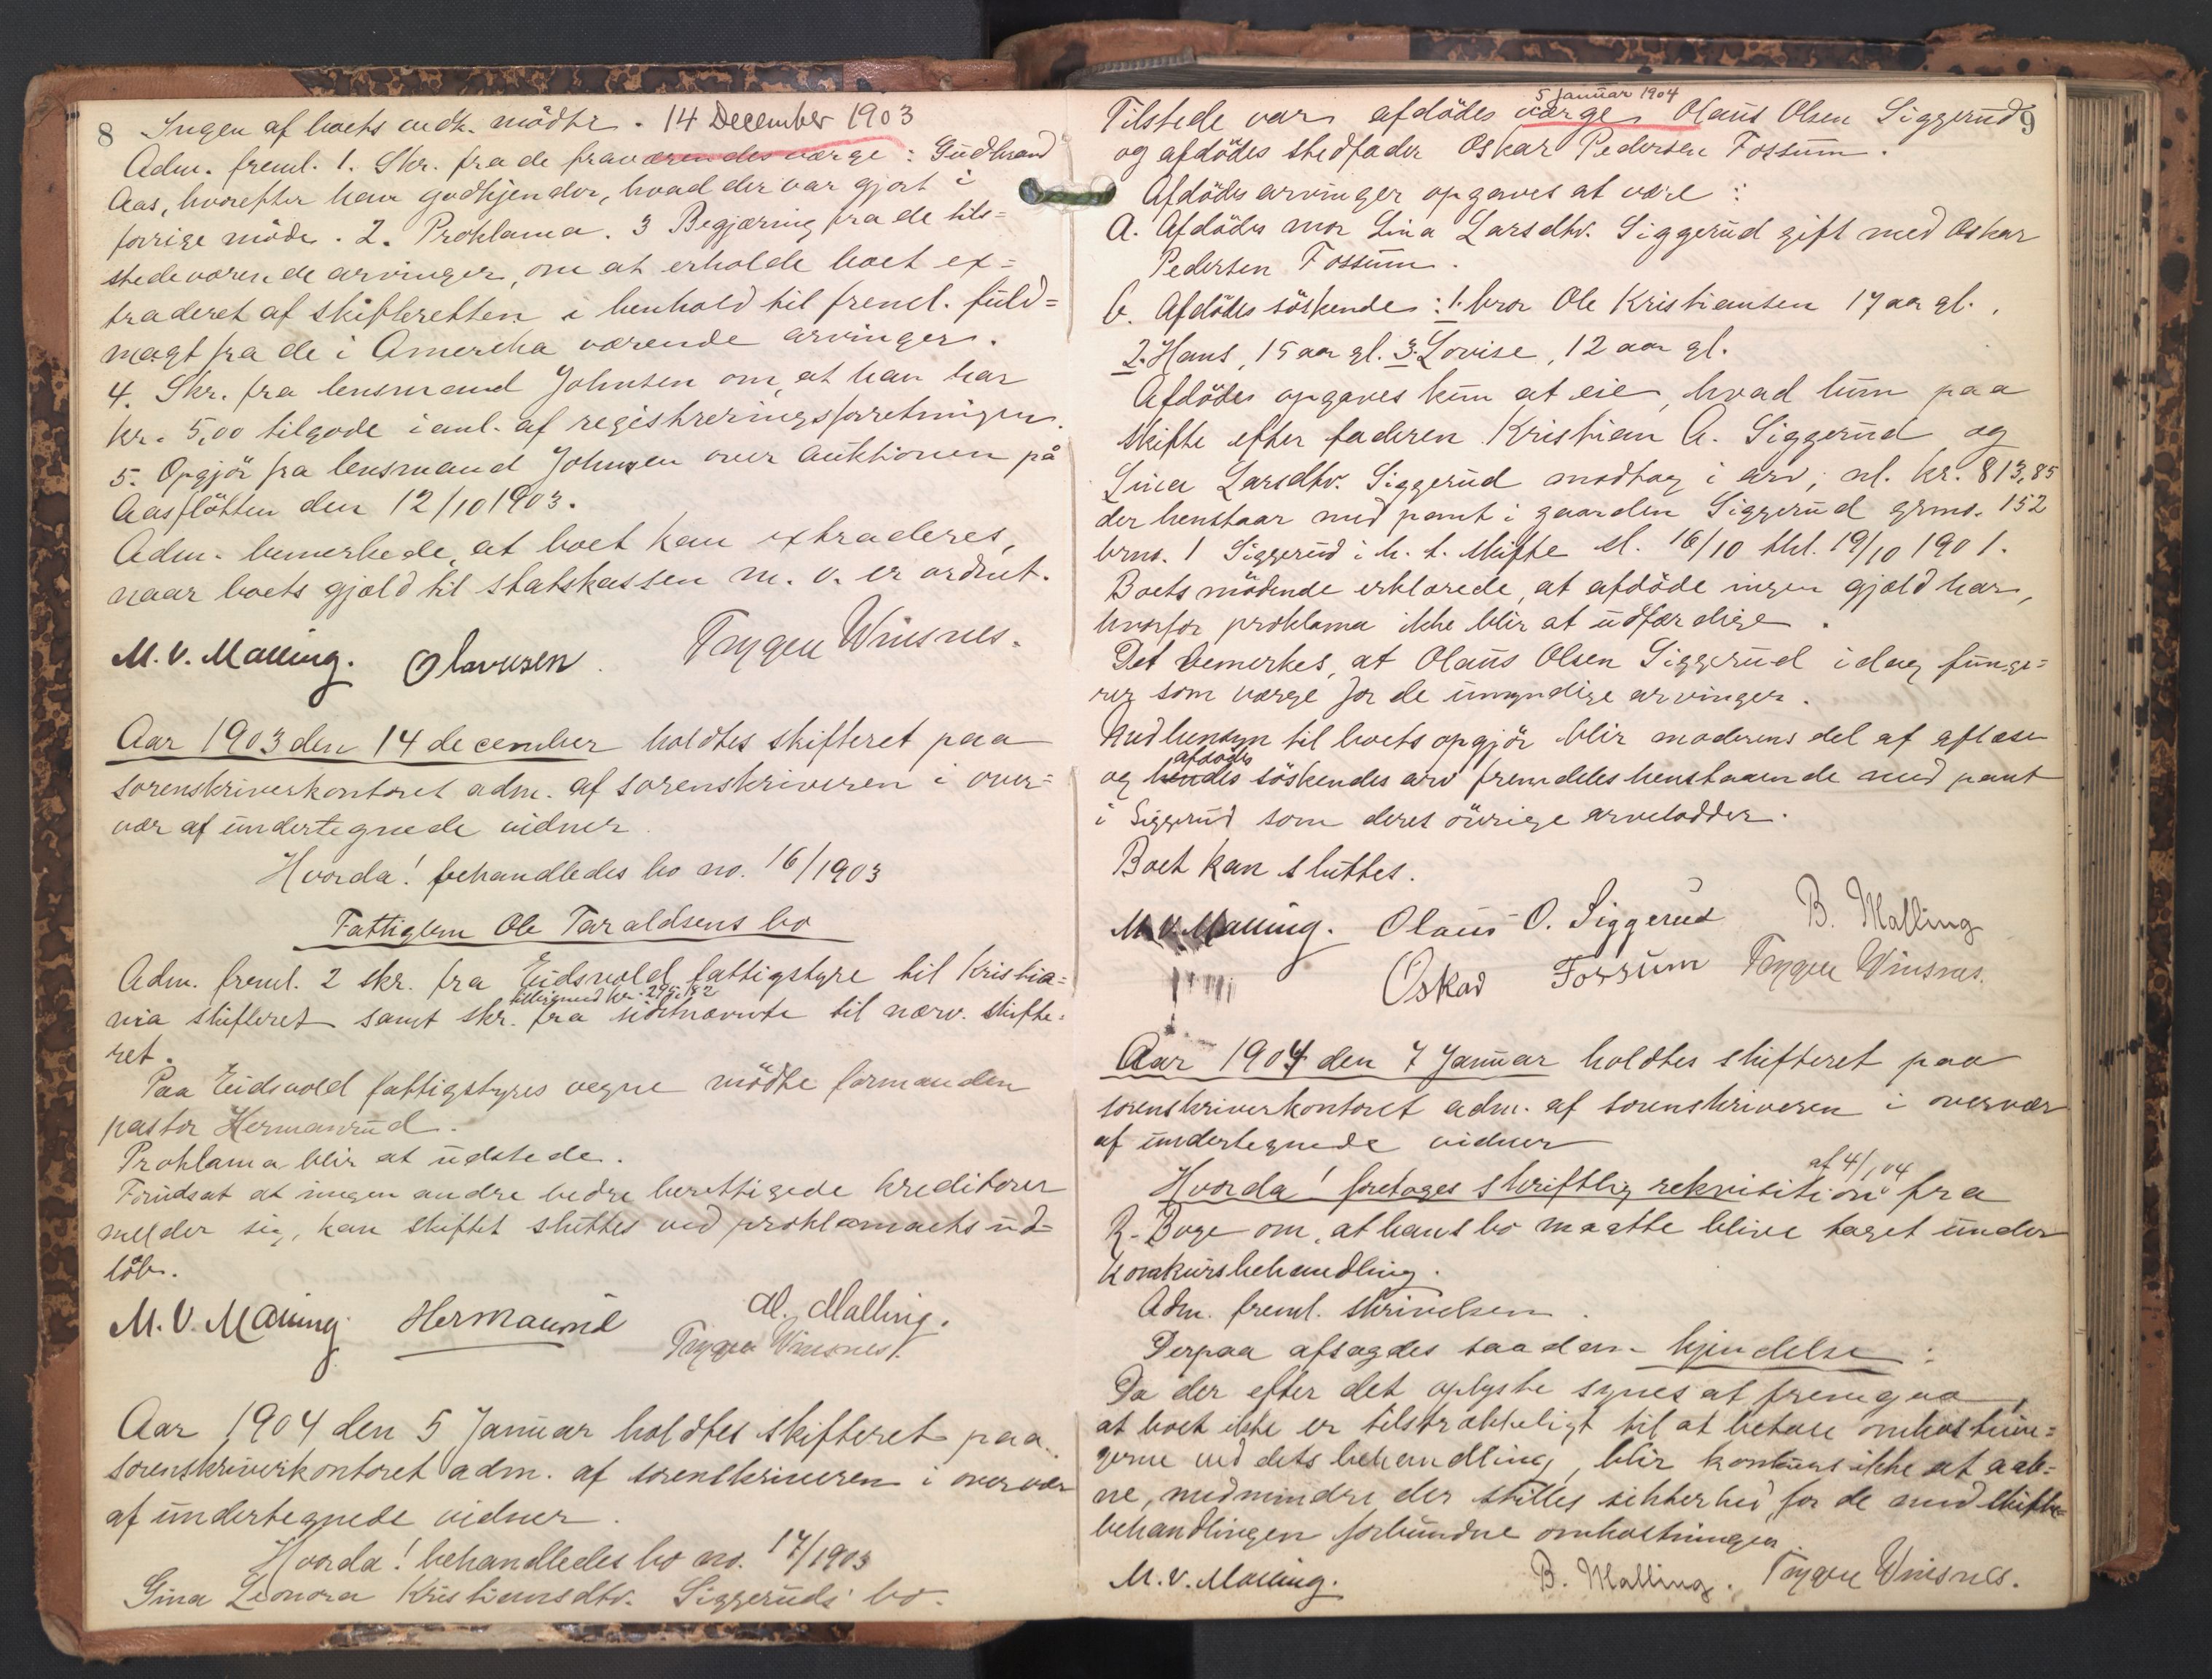 8 Ingen af boets vedk. mödte. 14 December 1903
Adm. freml. 1. Skr. fra de fraværendes værge: Gudbrand
Aas, hvorefter han godkjender, hvad der var gjort i
forrige möde. 2. Proklama. 3 Begjæring fra de tils=
stedeværende arvinger, om at erholde boet ex=
traderet af skifteretten i henhold til freml. fuld=
magt fra de i Amerika værende arvinger.
4. Skr. fra lensmand Johnsen om, at han har
kr. 5,00 tilgode i anl. af registreringsforretningen.
5. Opgjör fra lensmand Johnsen over auktionen på
Aasflötten den 12/10 1903.
Adm. bemerkede, at boet kan extraderes,
naar boets gjæld til statskassen m. v. er ordnet.
M. V. Malling. Olavesen. Trygve Winsnes.
Aar 1903 den 14 december holdtes skifteret paa
sorenskriverkontoret adm. af sorenskriveren i over=
vær af undertegnede vidner.
Hvorda! behandledes bo no. 16/1903
Fattiglem Ole Taraldsens bo
Adm. freml. 2 skr. fra Eidsvold fattigstyre til Kristia=
nia skifteret samt skr. fra sidstnævnte til nærv. skifte=
tilligemed kr. 295,82
ret.
Paa Eidsvold fattigstyres vegne mödte formanden
pastor Hermanrud.
Proklama blir at udstede.
Forudsat at ingen andre bedre berettigede kreditorer
melder sig, kan skiftet sluttes ved proklamaets ud=
löb.
M. V. Malling Hermanrud M. Malling.
Trygve Winsnes.
Aar 1904 den 5 Januar holdtes skifteret paa
sorenskriverkontoret adm. af sorenskriveren i overvær
af undertegnede vidner.
Hvorda! behandledes bo no. 17/1903
Gina Leonora Kristiansdtr. Siggeruds bo.
5 Januar 1904
Tilstede var afdödes værge Olaus Olsen Siggerud 9
og afdödes stedfader Oskar Pedersen Fossum.
Afdödes arvinger opgaves at være:
a. Afdödes mor Lina Larsdtr. Siggerud gift med Oskar
Pedersen Fossum.
b. Afdödes söskende: 1. bror Ole Kristiansen 17 aar gl.,
2. Hans, 15 aar gl. 3. Lovise, 12 aar gl.
Afdöde opgaves kun at eie, hvad hun paa
skifte efter faderen Kristian A. Siggerud og
Lina Larsdtr. Siggerud modtog i arv, nl. kr. 813,85
der henstaar med pant i gaarden Siggerud grno. 152
brno. 1 Siggerud i h. t. skifte sl. 16/10 thl. 19/10 1901.
Boets mödende erklærede, at afdöde ingen gjæld har,
hvorfor proklama ikke blir at udfærdige.
Det bemerkes, at Olaus Olsen Siggerud idag funge=
rer som værge for de umyndige arvinger.
Med hensyn til boets opgjör blir moderens del af aflæse
og hendes afdödes söskendes arv fremdeles henstaaende med pant
i Siggerud som deres övrige arvelodder.
Boet kan sluttes.
M. V. Malling. Olaus O. Siggerud B. Malling
Oskar Fossum Trygve Winsnes.
Aar 1904 den 7 Januar holdtes skifteret paa
sorenskriverkontoret adm. af sorenskriveren i overvær
af undertegnede vidner
Hvorda! foretoges skriftlig rekvisition af 4/1 04 fra
R. Boge om, at hans bo maatte blive taget under
konkursbehandling.
Adm. freml. skrivelsen.
Derpaa afsagdes saadan kjendelse:
Da der efter det oplyste synes at fremgaa,
at boet ikke er tilstrækkeligt til at betale omkostnin=
gerne ved dets behandling, blir konkurs ikke at aab=
ne, medmindre der stilles sikkerhed for de med skifte=
behandlingen forbundne omkostninger.
M. V. Malling. B. Malling. Trygve Winsnes.